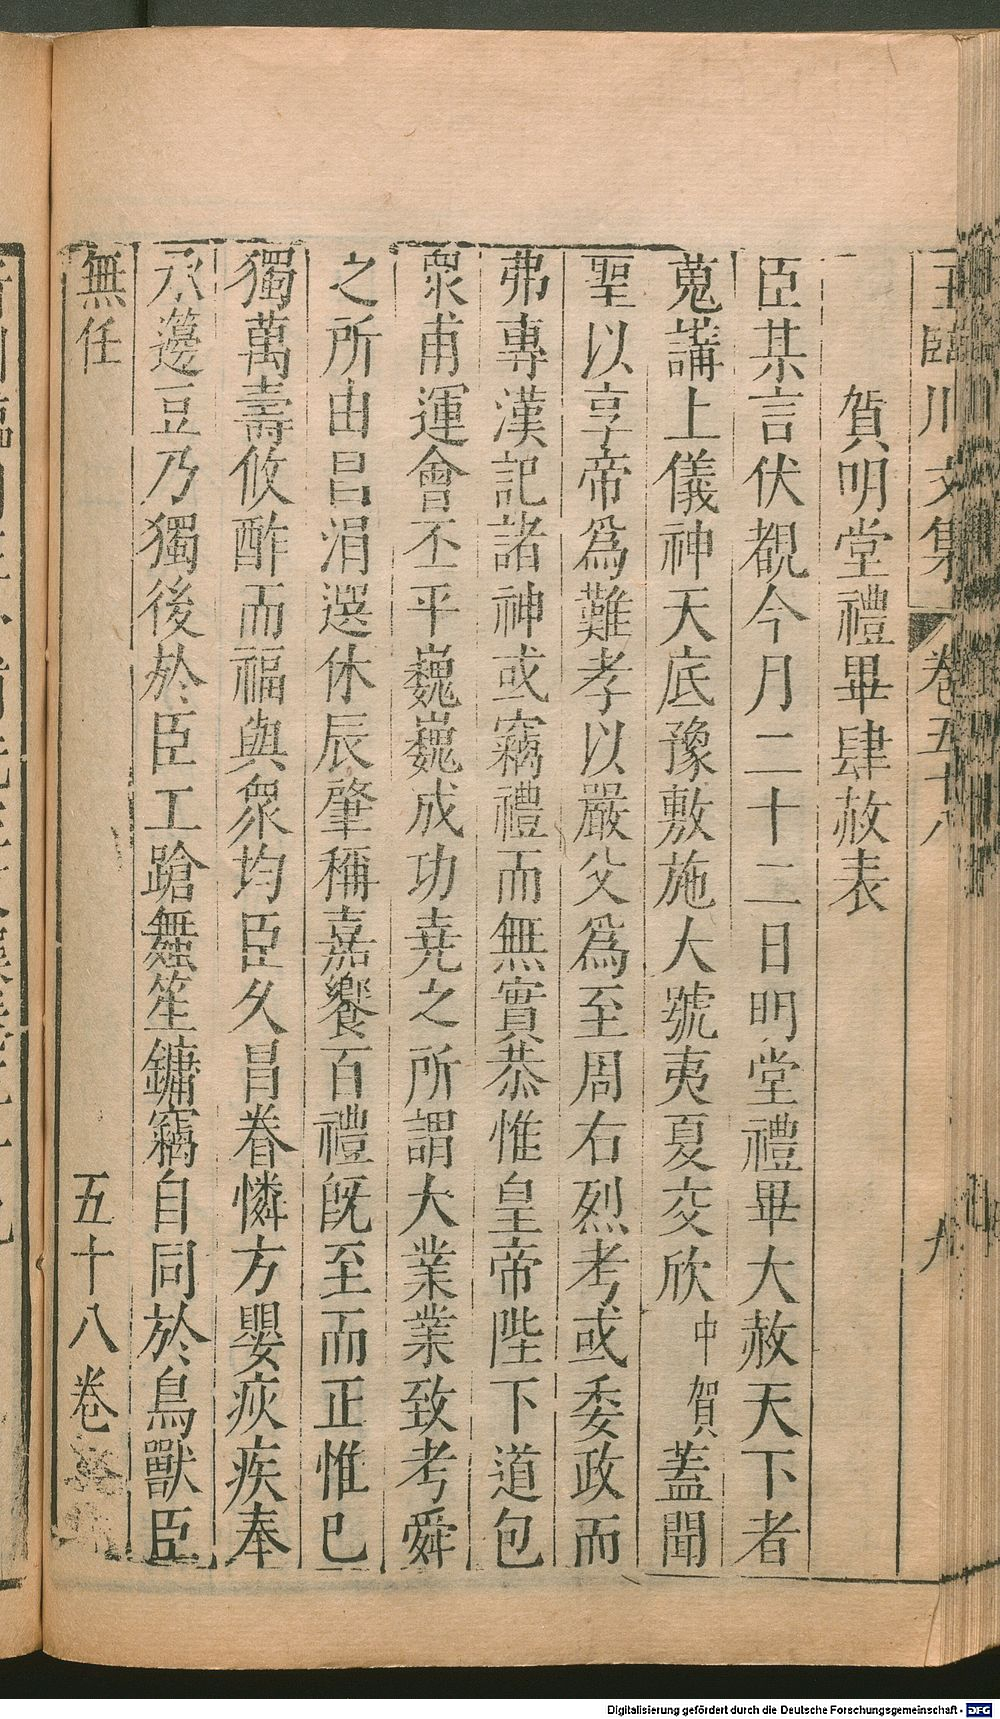 王臨川文集 卷五十八 九
賀明堂禮畢肆赦表
臣某言伏覩今月二十二日明堂禮畢大赦天下者
蒐講上儀神天底豫敷施大號夷夏交欣中賀蓋聞
聖以享帝爲難孝以嚴父爲至周右烈考或委政而
弗專漢記諸神或竊禮而無實恭惟皇帝陛下道包
衆甫運會丕平巍巍成功堯之所謂大業業致考舜
之所由昌涓選休辰肇稱嘉饗百禮旣至而正惟已
獨萬壽攸酢而福與衆均臣久昌眷憐方嬰疢疾奉
承籩豆乃獨後於臣工蹌舞笙鏞竊自同於鳥獸臣
無任
五十八卷
Digitalisierung gefördert durch die Deutsche Forschungsgemeinschaft - DFG